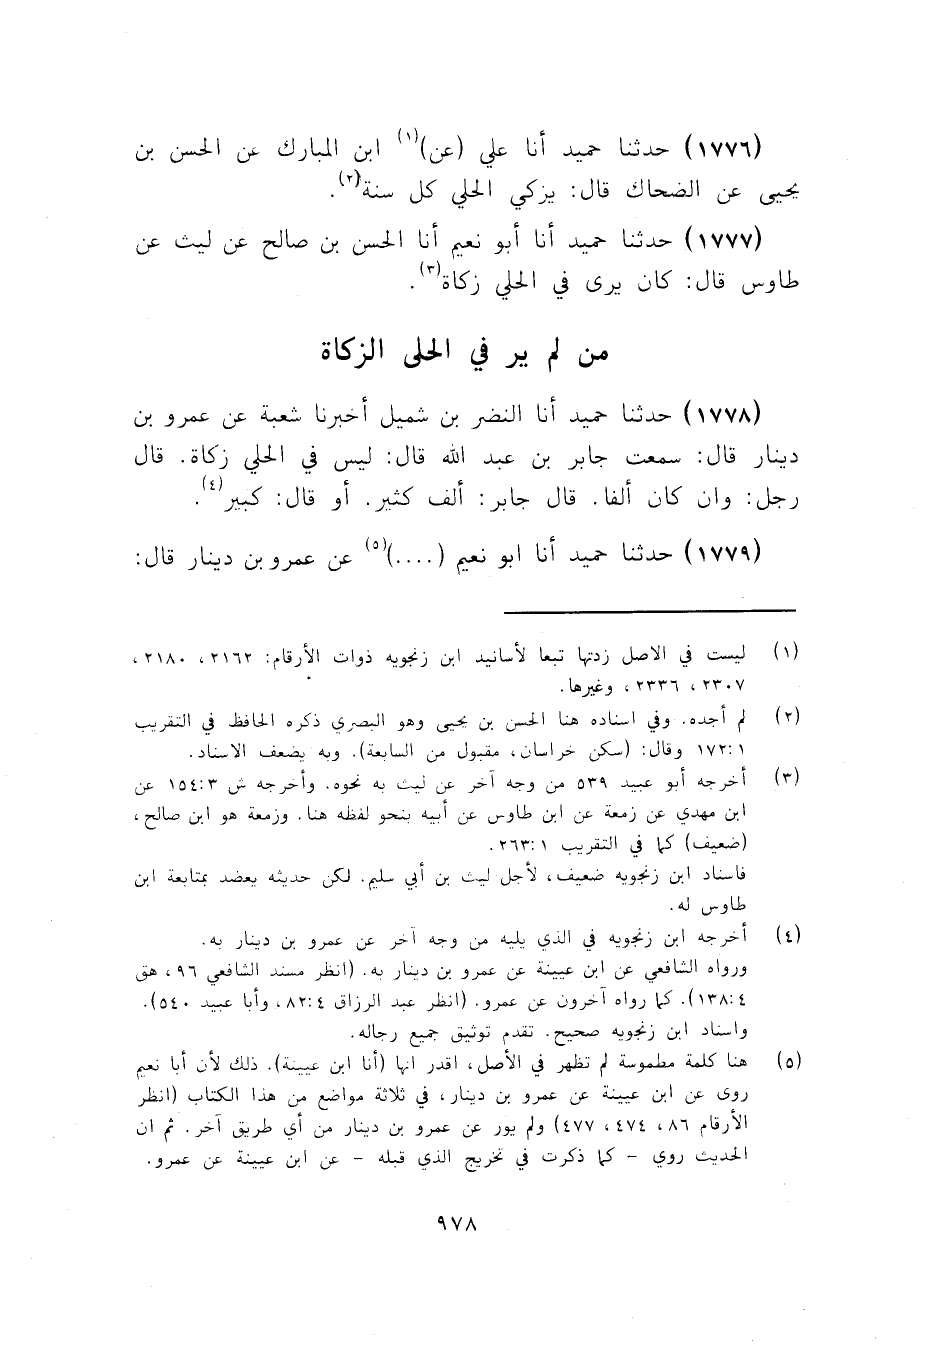 (١٧٧٦) حدثنا حميد أنا علي (عن)(١) ابن المبارك عن الحسن بن
يحيى عن الضحاك قال: يزكي الحلي كل سنة(٢).
(١٧٧٧) حدثنا حميد أنا أبو نعيم أنا الحسن بن صالح عن ليث عن
طاوس قال: كان يرى في الحلي زكاة(٣).
من لم ير في الحلى الزكاة
(١٧٧٨) حدثنا حميد أنا النضر بن شميل أخبرنا شعبة عن عمرو بن
دينار قال: سمعت جابر بن عبد الله قال: ليس في الحلي زكاة. قال
رجل: وان كان ألفا. قال جابر: ألف كثير. أو قال: كبير(٤).
(١٧٧٩) حدثنا حميد أنا ابو نعيم (....)(٥) عن عمرو بن دينار قال:
(١) ليست في الاصل زدتها تبعا لأسانيد ابن زنجويه ذوات الأرقام: ٢١٦٢، ٢١٨٠،
٢٣٠٧، ٢٣٣٦، وغيرها.
(٢) لم أجده. وفي اسناده هنا الحسن بن يحيى وهو البصري ذكره الحافظ في التقريب
١٧٢:١ وقال: (سكن خراسان، مقبول من السابعة). وبه يضعف الاسناد.
(٣) أخرجه أبو عبيد ٥٣٩ من وجه آخر عن ليث به نحوه. وأخرجه ش ١٥٤:٣ عن
ابن مهدي عن زمعة عن ابن طاوس عن أبيه بنحو لفظه هنا. وزمعة هو ابن صالح،
(ضعيف) كما في التقريب ٢٦٣:١.
فاسناد ابن زنجويه ضعيف، لأجل ليث بن أبي سليم. لكن حديثه يعضد بمتابعة ابن
طاوس له.
(٤) أخرجه ابن زنجويه في الذي يليه من وجه آخر عن عمرو بن دينار به.
ورواه الشافعي عن ابن عيينة عن عمرو بن دينار به. (انظر مسند الشافعي ٩٦، هق
١٣٨:٤). كما رواه آخرون عن عمرو. (انظر عبد الرزاق ٨٢:٤، وأبا عبيد ٥٤٠).
واسناد ابن زنجويه صحيح. تقدم توثيق جميع رجاله.
(٥) هنا كلمة مطموسة لم تظهر في الأصل، اقدر انها (أنا ابن عيينة). ذلك لأن أبا نعيم
روى عن ابن عيينة عن عمرو بن دينار، في ثلاثة مواضع من هذا الكتاب (انظر
الأرقام ٨٦، ٤٧٤، ٤٧٧) ولم يور عن عمرو بن دينار من أي طريق آخر. ثم ان
الحديث روي - كما ذكرت في تخريج الذي قبله - عن ابن عيينة عن عمرو.
٩٧٨